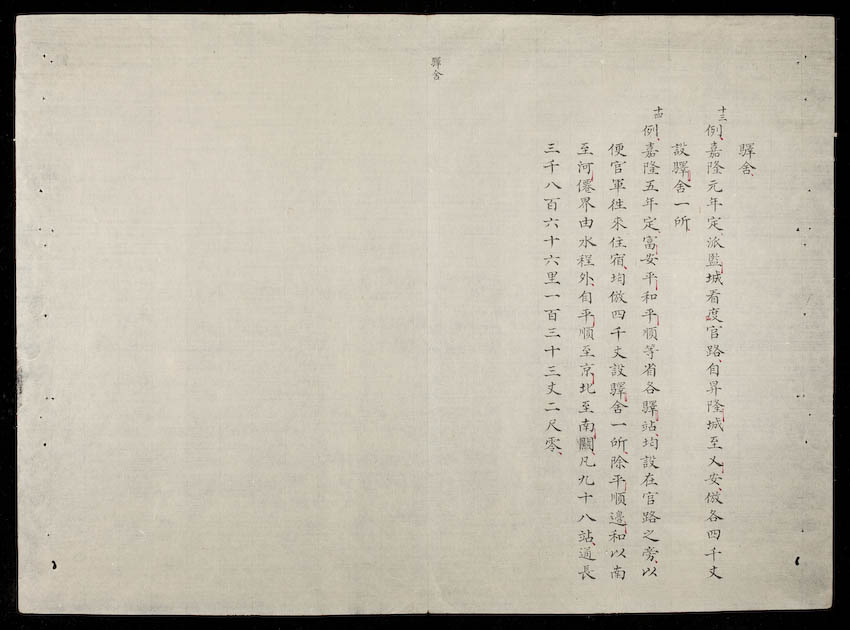 驛舍
十三
例嘉隆元年定派監城看度官路自昇隆城至乂安倣各四千丈
設驛舍一所
十四
例嘉隆五年定富安平和平順等省各驛站均設在官路之旁以
便官軍往來住宿均倣四千丈設驛舍一所除平順邊和以南
至河僊界由水程外自平順至京北至南關凡九十八站通長
三千八百六十六里一百三十三丈二尺零
驛舍